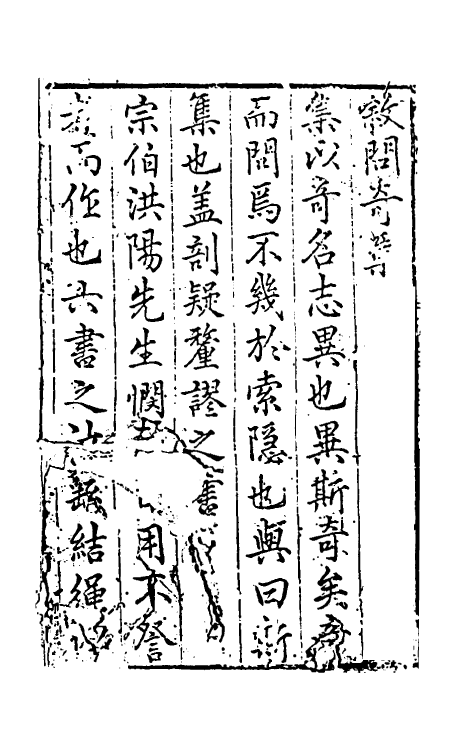 敘問奇集
集以奇名志異也異斯奇矣奇
而問焉不幾於索隱也與曰新
集也盖剖疑釐謬之書
宗伯洪陽先生憫 用不詧
而作也其書之 繇結繩